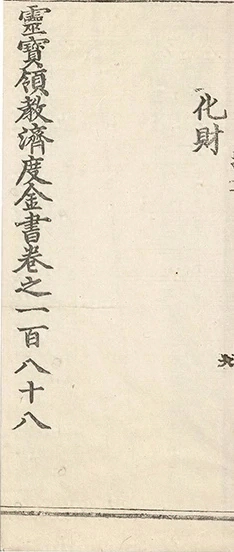 化財
靈寶領教濟度金書卷之一百八十八